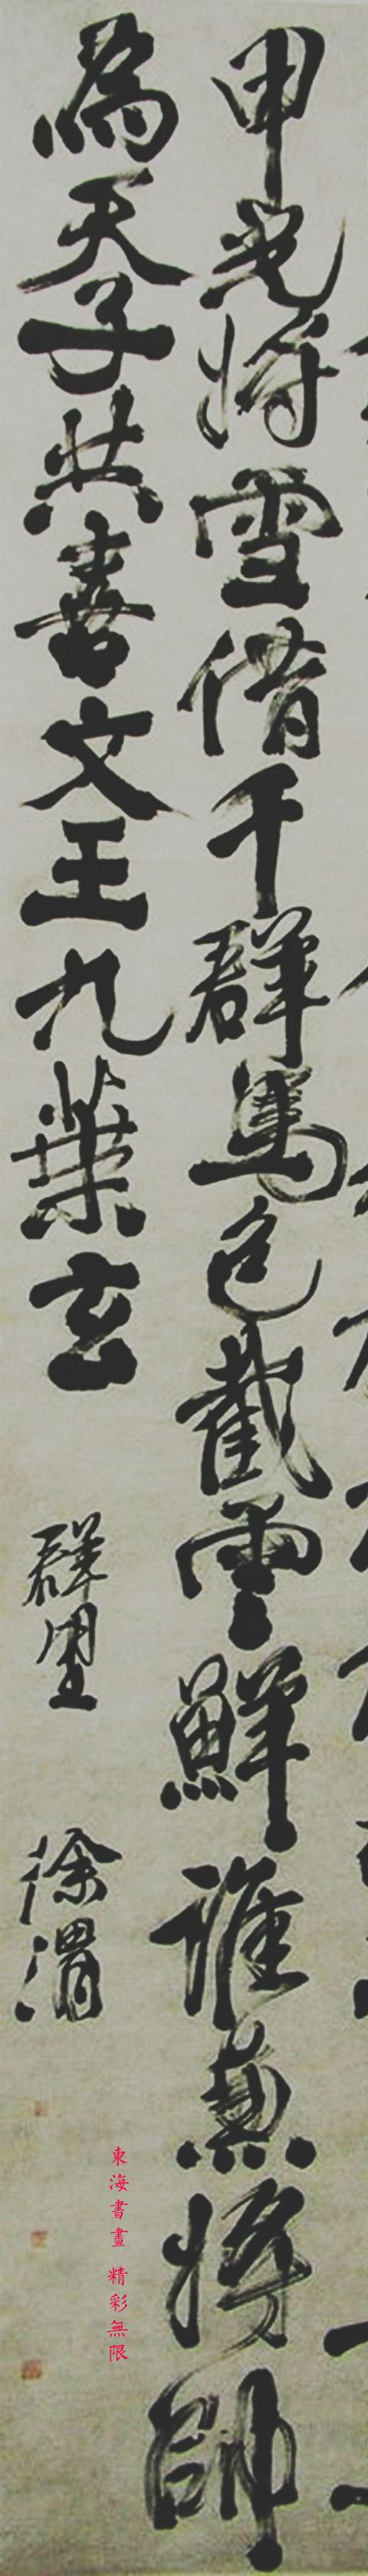 甲光將雪借千群馬色截雲鮮誰兼將帥
為天子共喜文王九葉玄
群望
徐渭
東海書畫 精彩無限